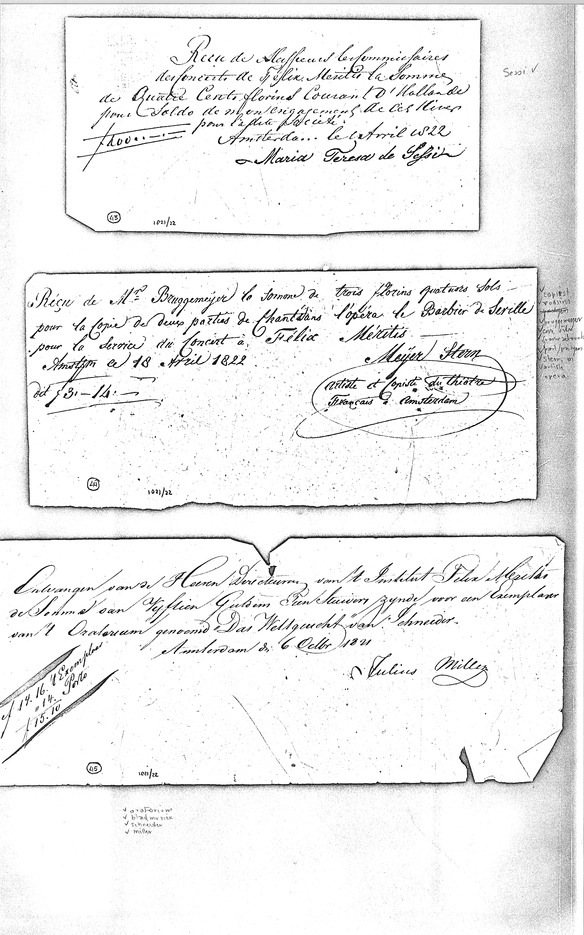 Recu de Messieurs les Commissaires
des Concerts de Félix Meritis la Somme
de Quatre Cents florins Courant D'Hollande
pour Soldo de mon engagement de cet Hiver
pour la dite Société
Amsterda... le Avril 1822
f400.—.—
Maria Teresa de Sessi
Sessi ✓
43
1021/22
Réçu de Mr. Bruggemeÿer la somme de trois florins quatorze Sols
pour la Copie de deux parties de Chant dans l'opéra le Barbier de Seville
pour la Service du Concert à Félix Meritis
Amstdm ce 18 Avril 1822
Meÿer Stern
dit f 3.—14.—
artiste et Copiste du théatre
Français à Amsterdam
44
1021/22
Ontvangen van de Heeren Directeuren van 't Institut Felix Meritis
de Somma van Vyftien Guldens Tien Stuivers zynde voor een Exemplaar
van 't Oratorium genoemd Das Weltgericht van Schneider.
Amsterdam de 6 Octbr 1821
Julius Miller
f 14.16. 1 Exemplaar
" 14. Porto
f 15.10
45
1021/22
✓ oratorium
✓ bladmuziek
✓ schneider
✓ miller